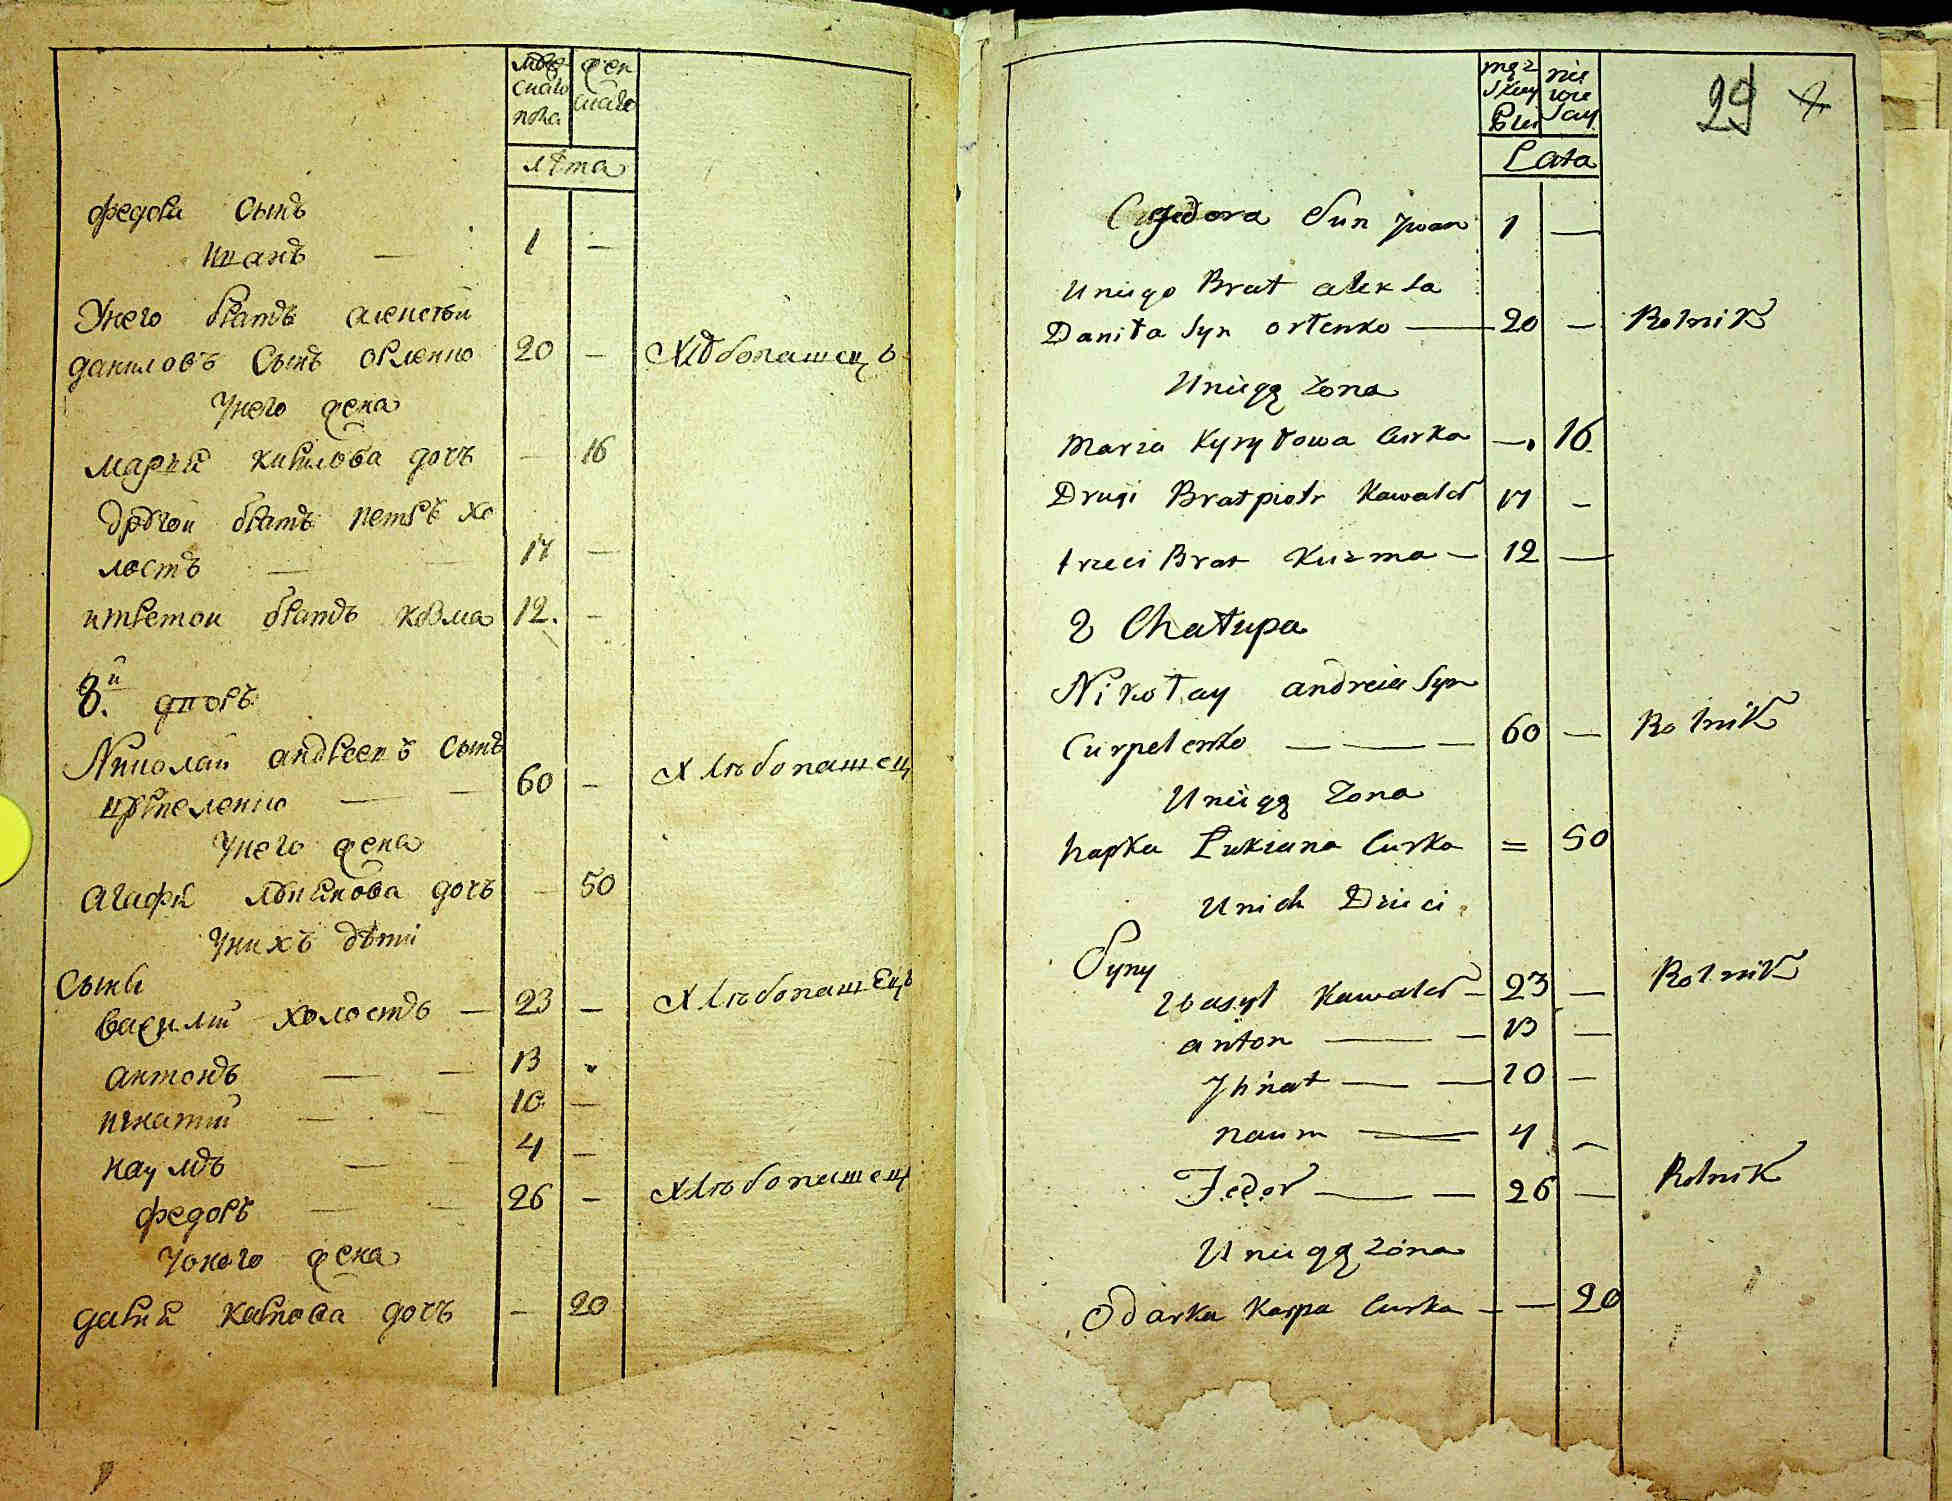 муж
скаго
пола
жен
скаго
лѣта
федора сынъ
иванъ — 1 —
Унего братъ алексѣй
даниловъ сынъ орленко 20 — хлѣбопашецъ
Унего жена
марья кирилова дочъ — 16
другой братъ петръ хо
лостъ — — 17 —
итретои братъ козма 12. —
8.й дворъ
Николай андреевъ сынъ
цурпеленко — — 60 — хлѣбопашец
Унего жена
агафья лукіянова дочъ — 50
Унихъ дѣти
сыны
василий холостъ — 23 — хлѣбопашецъ
антонъ — — 13
игнатий — — 10 —
наумъ — — 4 —
федоръ — — 26 — хлѣбопашец
Уоного жена
дарья карпова дочъ — 20
męz
skiey
Płci
nie
wie
sciey
Lata
29
Fedora Sun Jwan 1 —
Uniego Brat alexsa
Daniła Syn orlenko — 20 — Rolnik
Uniegą żona
Maria Kyryłowa Curka — 16
Drugi Brat piotr Kawaler 17 —
trzeci Brat Kuzma — 12 —
8 Chałupa
Nikołay andreia Syn
Curpelenko — — — 60 — Rolnik
Uniegą Zona
hapka Łukiana Curka = 50
Unich Dzieci
Syny
Wasyl Kawaler — 23 — Rolnik
anton — — 13 —
Jhnat — — 10 —
naum — 4 —
Fedor — — 26 — Rolnik
Uniegą żona
Odarka Karpa Curka — — 20